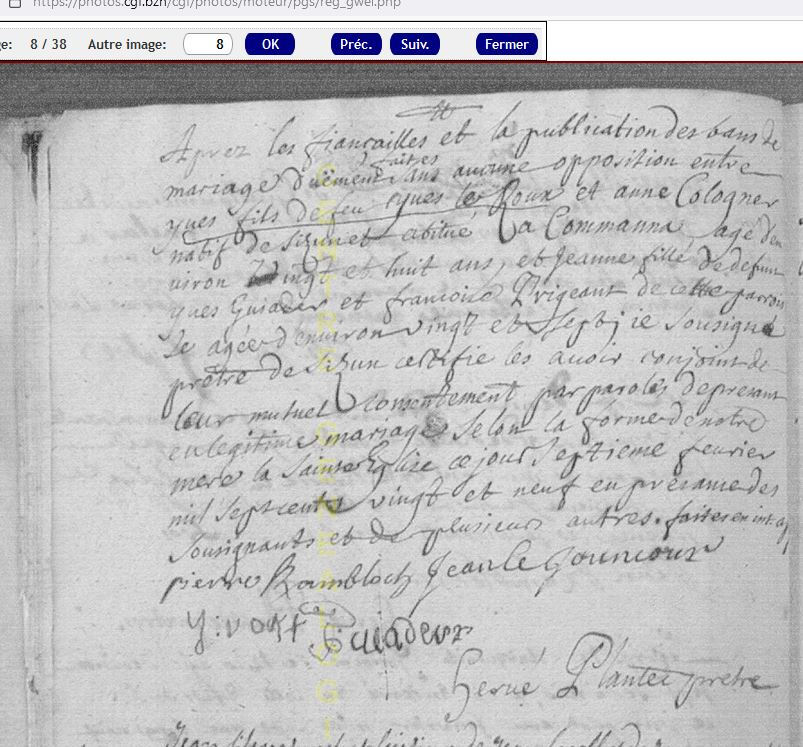 https://photos.cgf.bzh/cgf/photos/moteur/pgs/reg_gwel.php
ge: 8 / 38 Autre image: 8 OK Préc. Suiv. Fermer
Aprez les fiancailles et la publication des bans de
mariage duëment faites sans aucune opposition entre
yves fils de feu yves le Roux et anne Cologner
natif de Sizun et abitué a Commanna agé d'en
viron vingt et huit ans, et Jeanne fille de defunt
yves Guiader et francoise Prigeant de cette parrois
se agée d'environ vingt et sept, je sousigné
prêtre de Sizun certifie les avoir conjoint de
leur mutuel consentement par paroles de presant
en legitime mariage selon la forme de notre
mere la Sainte Eglise ce jour septieme fevrier
mil sept cents vingt et neuf en presance des
sousignants et de plusieurs autres. faites en int
pierre Rambloch Jean le Gouncour
y: vost Guiadeur
herué Plantec pretre
CENTRE GENEALOGI